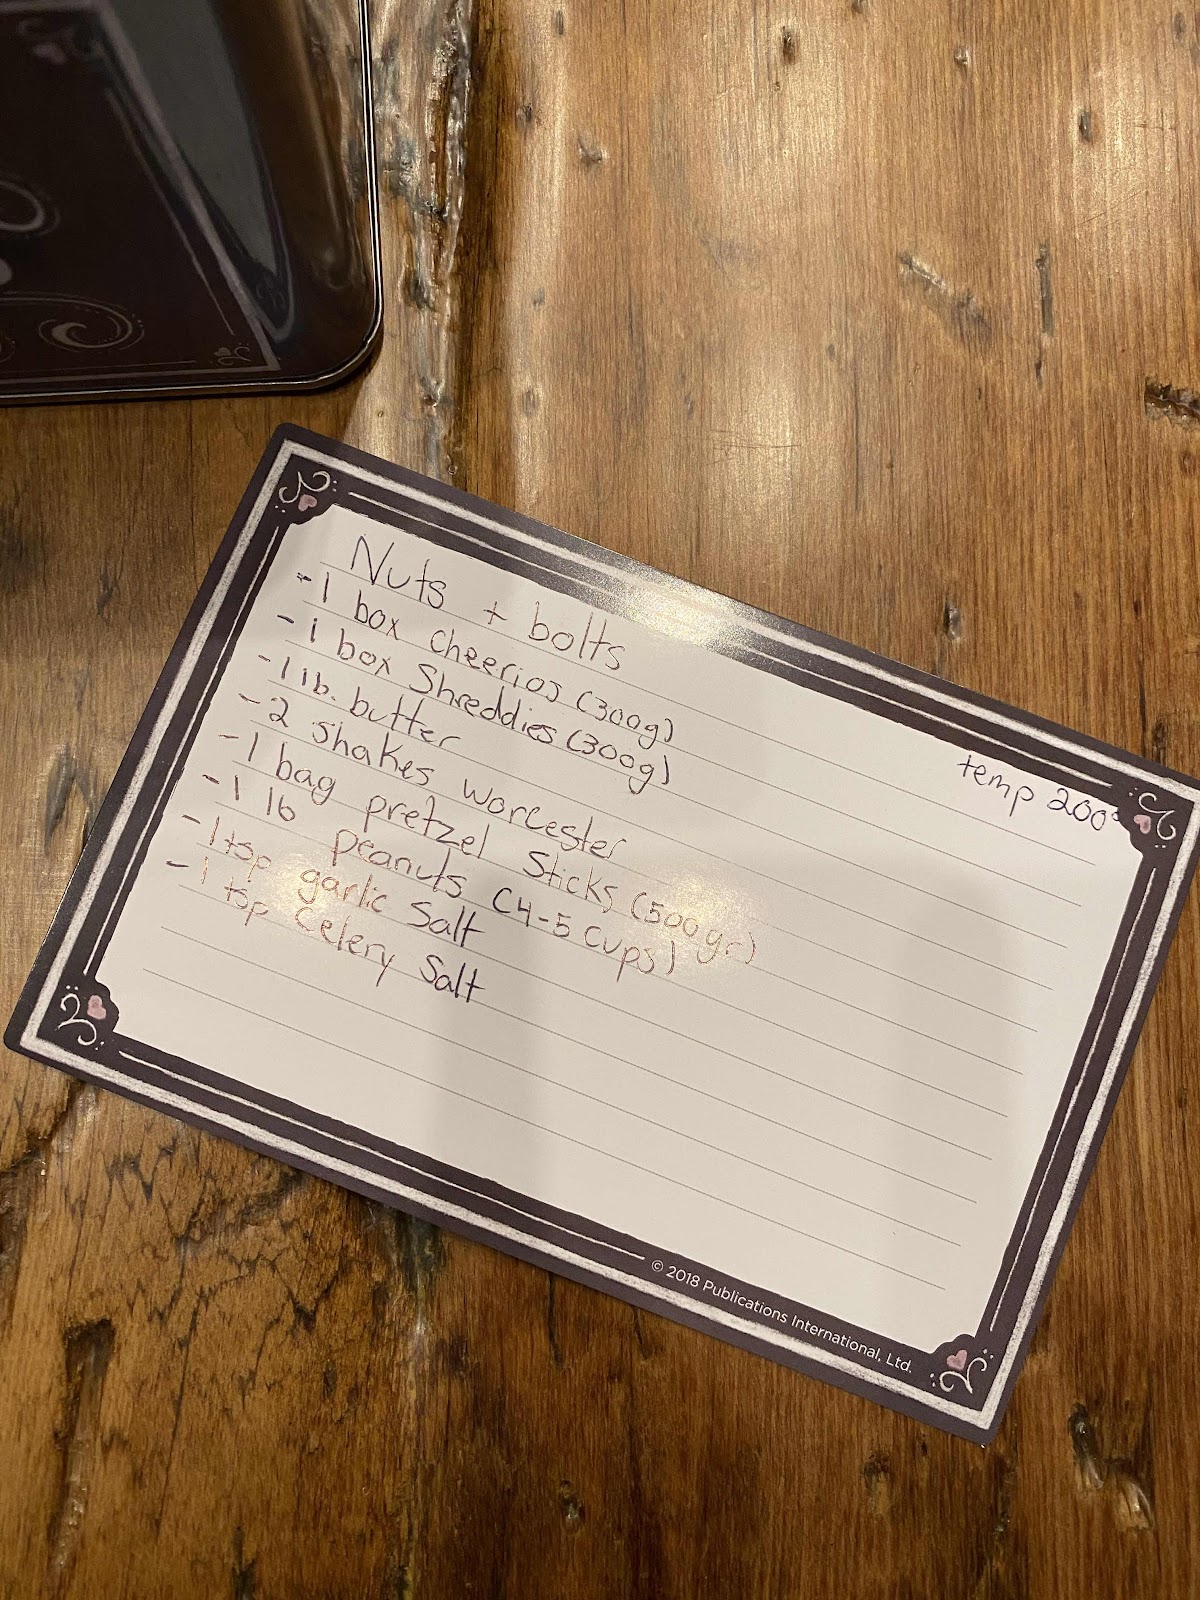 Nuts + bolts
temp 200°
- 1 box cheerios (300g)
- 1 box Shreddies (300g)
- 1 lb. butter
- 2 shakes worcester
- 1 bag pretzel Sticks (500gr)
- 1 lb peanuts (4-5 cups)
- 1 tsp garlic Salt
- 1 tsp Celery Salt
© 2018 Publications International, Ltd.